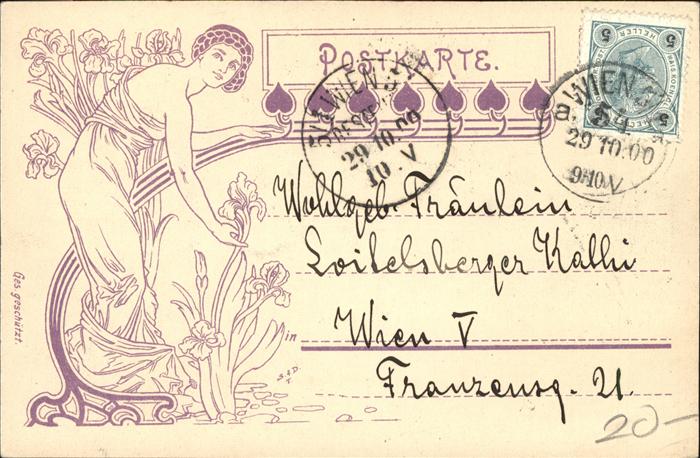 POSTKARTE.
5 HELLER 5
WIEN
29 10.00
10.V
WIEN
29 10.00
9-10V
Wohlgeb. Fräulein
Loitelsberger Kathi
in Wien V
Franzensg. 21.
Ges. geschützt.
20-